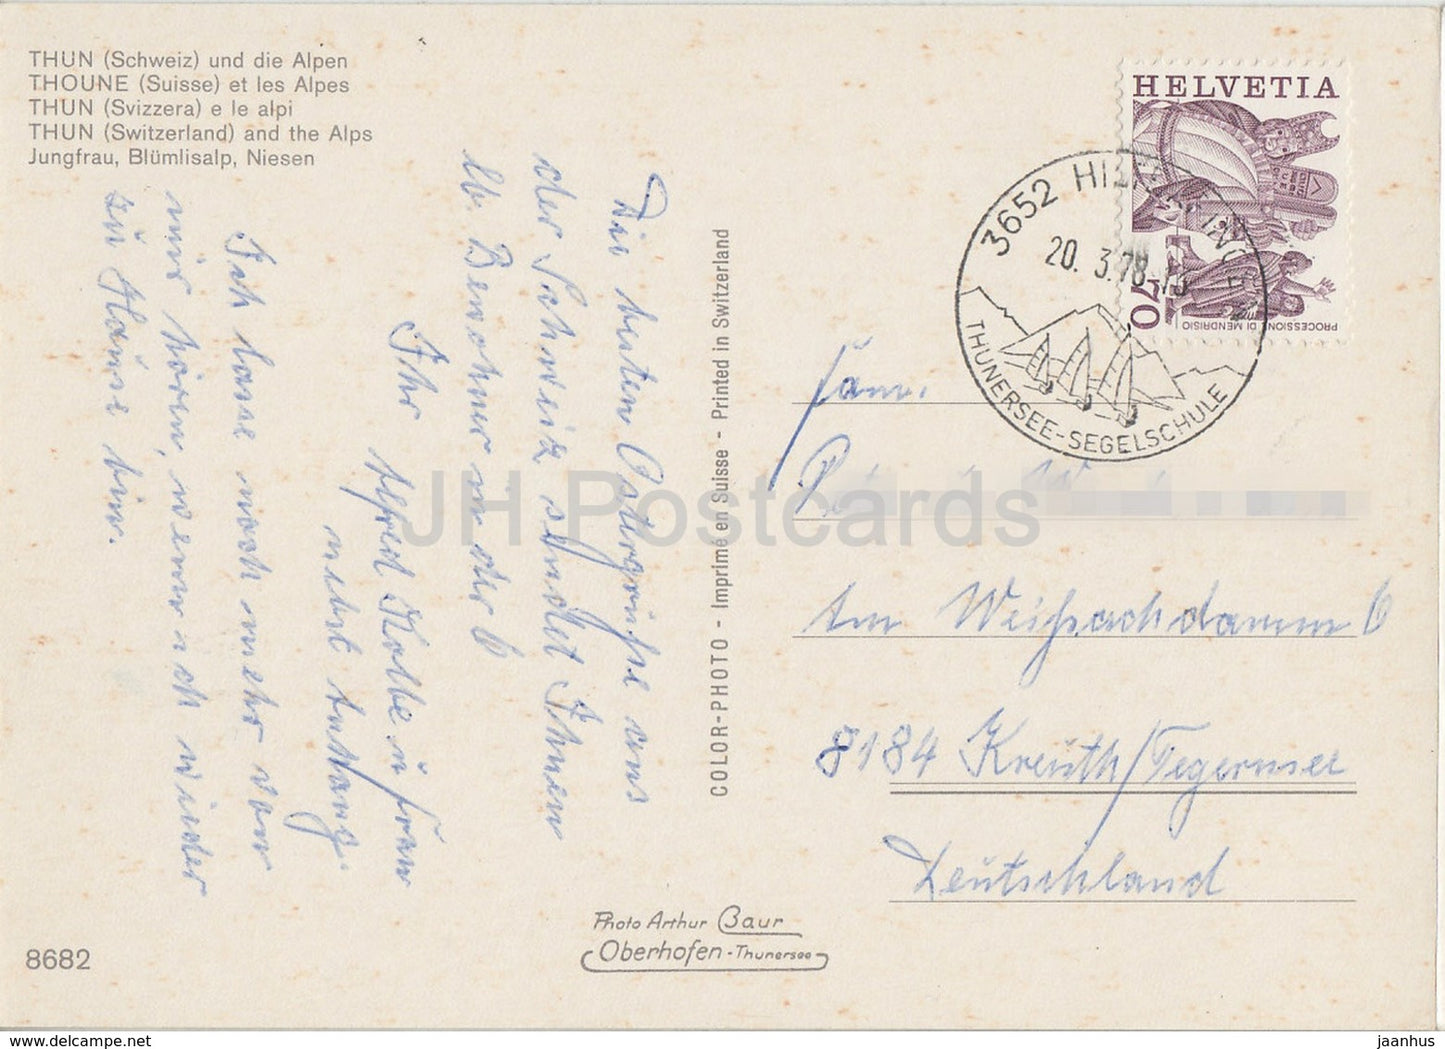 THUN (Schweiz) und die Alpen
THOUNE (Suisse) et les Alpes
THUN (Svizzera) e le alpi
THUN (Switzerland) and the Alps
Jungfrau, Blümlisalp, Niesen
Die besten Ostergrüße aus
der Schweiz sendet Ihnen
lb. Bewohner in der 6
Ihr
Alfred Kolbe u. Frau
nebst Anhang.
Ich lasse noch mehr von
mir hören, wenn ich wieder
zu Hause bin.
COLOR-PHOTO - Imprimé en Suisse - Printed in Switzerland
HELVETIA
70
PROCESSIONI DI MENDRISIO
3652 HILTERFINGEN
20. 3. 78
THUNERSEE-SEGELSCHULE
Fam.
Am Weißachdamm 6
8184 Kreuth/Tegernsee
Deutschland
Photo Arthur Baur
Oberhofen - Thunersee
8682
JH Postcards
www.delcampe.net
jaanhus